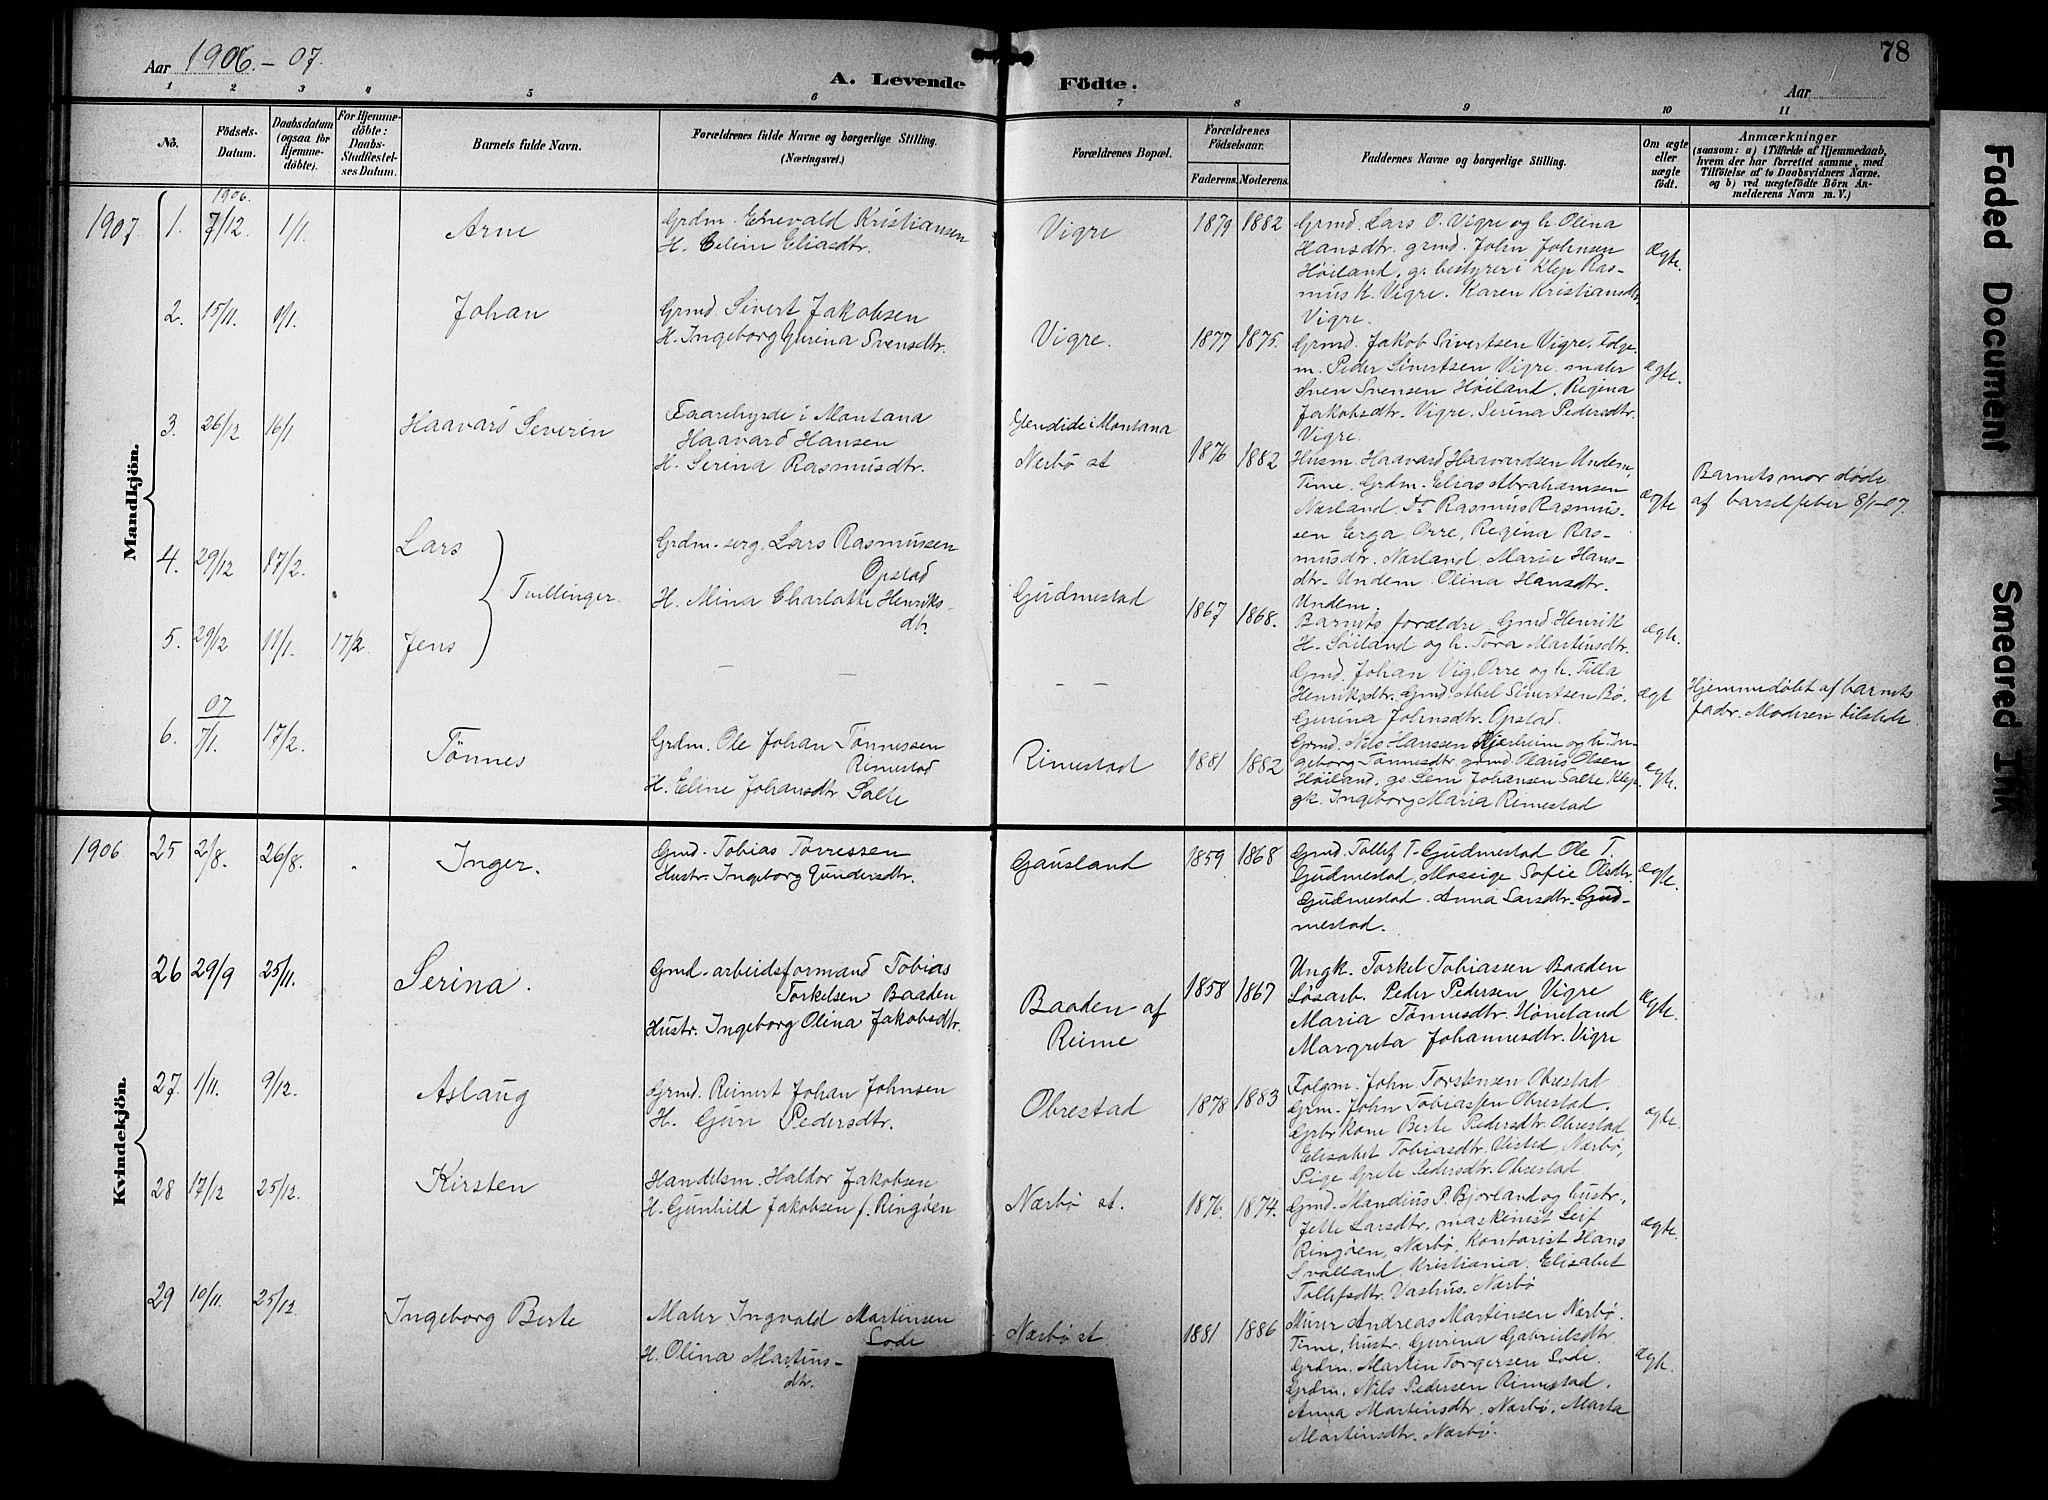 Aar 1906.-07.
A. Levende Födte.
Aar
78
1 2 3 4 5 6 7 8 9 10 11
No.
Födsels-Datum.
Daabsdatum (ogsaa for Hjemmedöbte).
For Hjemmedöbte: Daabs-Stadfæstelses Datum.
Barnets fulde Navn.
Forældrenes fulde Navne og borgerlige Stilling. (Næringsvei.)
Forældrenes Bopæl.
Forældrenes Födselsaar.
Faderens. Moderens.
Faddernes Navne og borgerlige Stilling.
Om ægte eller uægte födt.
Anmærkninger
(saasom: a) i Tilfælde af Hjemmedaab,
hvem der har forrettet samme, med
Tilföielse af to Daabsvidners Navne,
og b) ved uægtefödte Börn Anmelderens Navn m. V.)
Mandkjön.
1907
1906.
1. 7/12 1/1 Arne
Grdm. Enevald Kristiansen
H. Eline Eliasdtr.
Vigre 1879 1882
Grmd. Lars O. Vigre og h. Olina
Hansdtr. grmd. John Johnsen
Høiland, g. bestyrer i Klep Ras-
mus K. Vigre. Karen Kristiansdtr.
Vigre.
ægte.
2. 15/11. 1/1. Johan
Grmd. Sivert Jakobsen
H. Ingeborg Gurina Svensdtr.
Vigre. 1877 1875.
Grmd. Jakob Sivertsen Vigre. Folge-
m. Peder Sivertsen Vigre. maler
Sven Svensen Høiland, Regina
Jakobsdtr. Vigre. Serina Pedersdtr.
Vigre.
ægte.
3. 26/12 16/1 Haavard Severin
Faarehyrde i Montana
Haavard Hansen
H. Serina Rasmusdtr.
Glendide i Montana
Nerbö st 1876 1882
Husm. Haavard Haavardsen Undem,
Time. Grdm. Elias Abrahamsen
Nærland. Do Rasmus Rasmus-
sen Erga, Orre, Regina Ras-
musdtr. Nærland. Marie Hans-
dtr. Undem. Olina Hansdtr.
Undem.
ægte
Barnets mor døde
af barselfeber 8/1-07.
4. 29/12 17/2. Lars
Tvillinger.
Grdm.-serg. Lars Rasmussen
Opstad
H. Mina Charlotte Henriks-
dtr.
Gudmestad 1867 1868.
Barnets forældre. Gmd. Henrik
H. Søiland og h. Tora Martinsdtr.
Gmd. Johan Vig, Orre og h. Tilla
Henriksdtr. Gmd. Abel Sivertsen Bø.
Gurina Johnsdtr. Opstad.
ægte.
5. 29/12 11/1. 17/2. Jens
— — —
ægt
Hjemmedøbt af barnets
fadr. Moderen tilstede.
07
6. 7/1. 17/2. Tönnes
Grdm. Ole Johan Tönnessen
Rimestad
H. Eline Johansdtr Salte
Rimestad 1881 1882
Grmd. Nils Hanssen Njærheim og h. In-
geborg Tönnesdtr. grmd. Olaus Olsen
Høiland, gs. Johansen Salte Klep
gk. Ingeborg Maria Rimestad
ægte.
Kvindekjön.
1906
25 2/8. 26/8. Inger.
Gmd. Tobias Torressen
Hustr. Ingeborg Gundersdtr.
Gausland 1859. 1868
Gmd. Tollef T. Gudmestad Ole T.
Gudmestad, Mossige Sofie Olsdtr.
Gudmestad. Anna Larsdtr. Gud-
mestad.
ægte.
26 29/9 25/11. Serina.
Gmd.-arbeidsformand Tobias
Torkelsen Baaden
Hustr. Ingeborg Olina Jakobsdtr.
Baaden af
Reime 1858 1867
Ungk. Torkel Tobiassen Baaden
Løsarb. Peder Pedersen Vigre
Maria Tönnesdtr. Høneland
Margreta Johannesdtr. Vigre
ægte.
27. 1/11. 9/12. Aslaug
Grmd. Reinert Johan Johnsen
H. Guri Pedersdtr.
Obrestad 1878 1883
Folgm. John Torstensen Obrestad
Grm. John Tobiassen Obrestad.
Grbr kone Berte Pedersdtr. Obrestad
Elisabet Tobiasdtr. Nærbø,
Pige Grete Pedersdtr. Obrestad
ægte.
28 17/12 25/12. Kirsten
Handelsm. Haldor Jakobsen
H. Gunhild Jakobsen f. Ringøen
Nærbö st. 1876. 1874.
Gmd. Mandius P. Bjorland og hustr.
Jette Larsdtr, maskinist Leif
Ringøen, Nærbö, Kontorist Hans
Svalland, Kristiania. Elisabet
Tollefsdtr. Vashus. Nærbö
ægte.
29 10/11. 25/12. Ingeborg Berte
Maler Ingvald Martinsen
Lode
H. Olina Martins-
dtr.
Nærbö st 1881 1886
Murer Andreas Martinsen Nærbö.
Time, hustr. Gurina Gabrielsdtr
Grdm. Martin Torgersen Lode.
Grdm. Nils Pedersen Rimestad.
Anna Martinsdtr. Nærbö. Marta
Martinsdtr. Nærbö.
ægte.
Faded Document
Smeared Ink